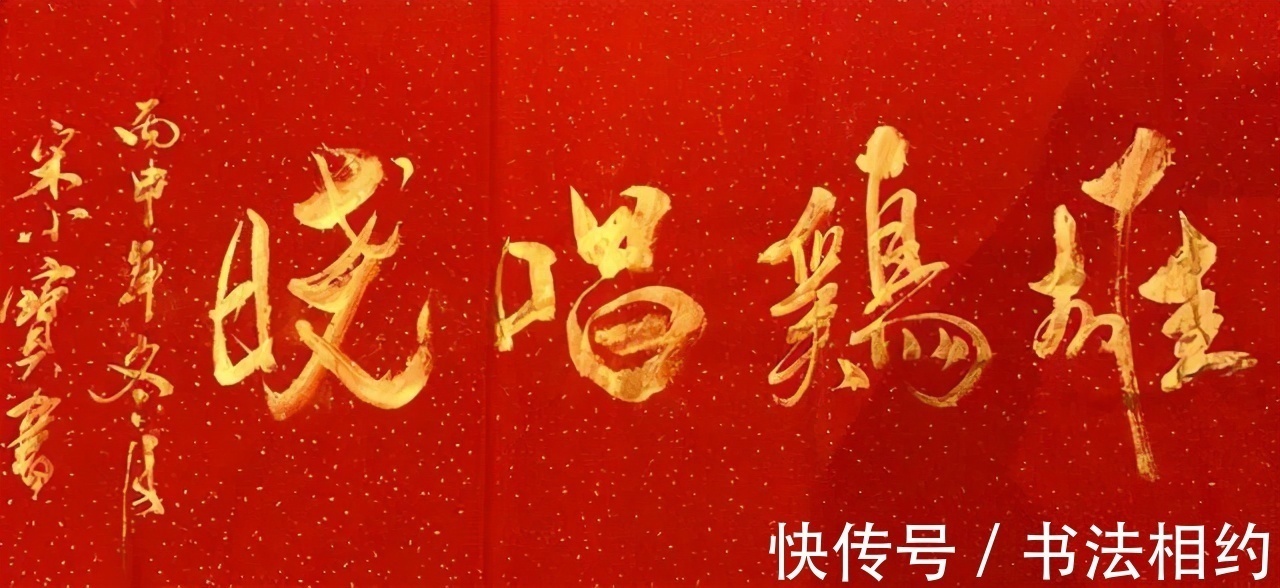 雄鷄唱晓
丙申年冬月
宋小寶書
快传号 / 书法相约